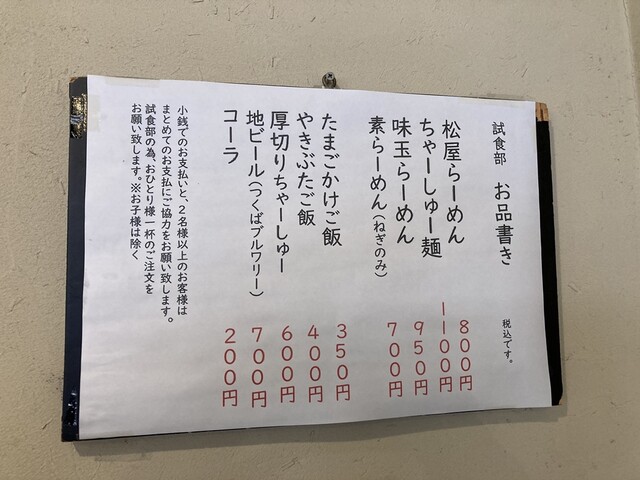 試食部　お品書き　税込です。
松屋らーめん　８００円
ちゃーしゅー麺　１１００円
味玉らーめん　９５０円
素らーめん（ねぎのみ）　７００円
たまごかけご飯　３５０円
やきぶたご飯　４００円
厚切りちゃーしゅー　６００円
地ビール（つくばブルワリー）　７００円
コーラ　２００円
小銭でのお支払いと、２名様以上のお客様は
まとめてのお支払にご協力をお願い致します。
試食部の為、おひとり様一杯のご注文を
お願い致します。※お子様は除く